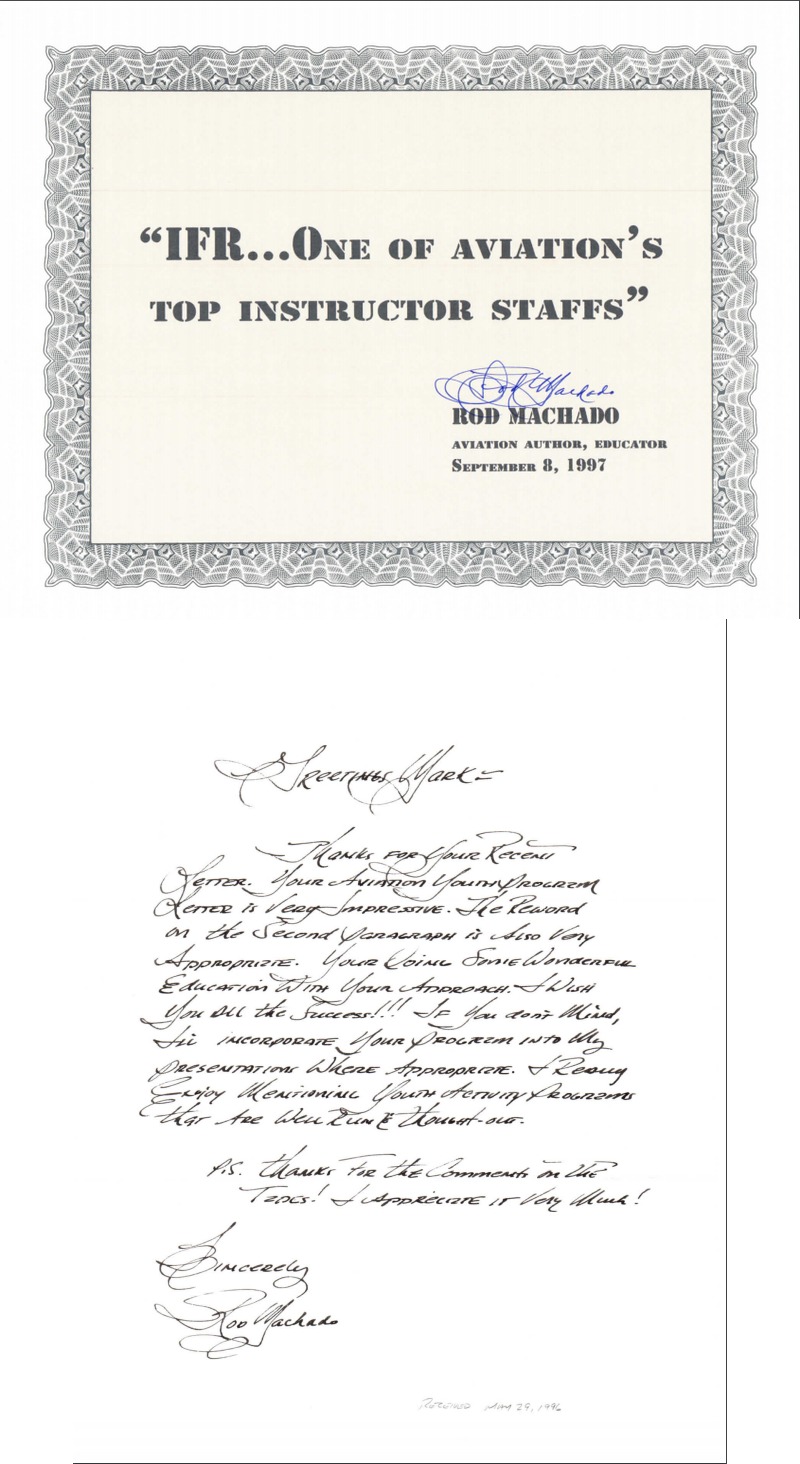 “IFR...One of aviation’s
top instructor staffs”
Rod Machado
ROD MACHADO
aviation author, educator
September 8, 1997
Greetings Mark –
Thanks for Your Recent
Letter. Your Aviation Youth Program
Letter is Very Impressive. The Reword
on the Second Paragraph is Also Very
Appropriate. Your Doing Some Wonderful
Education With Your Approach. I Wish
You All the Success!!! If You don't Mind,
I'll incorporate Your Program into My
presentations Where Appropriate. I Really
Enjoy Mentioning Youth Activity Programs
that Are Well Run & thought-out.
P.S. thanks For the Comments on the
Tapes! I Appreciate it Very Much!
Sincerely
Rod Machado
Received May 29, 1996